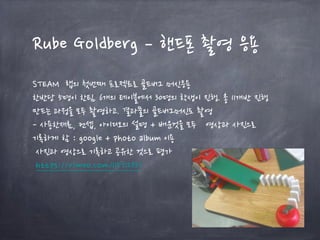 Rube Goldberg - 핸드폰 촬영 응용
STEAM 캠의 첫번째 프로젝트로 골드버그 머신수업
한반당 5명이 한팀, 6개의 테이블에서 30명의 학생이 진행, 총 11개반 진행
만드는 과정을 모두 촬영하고, 결과물의 골드버그머신도 촬영
- 사용한재료, 컨셉, 아이디어의 설명 + 배운것을 모두 영상과 사진으로
기록하게 함 : google + photo album 이용
사진과 영상으로 기록하고 공유한 것으로 평가